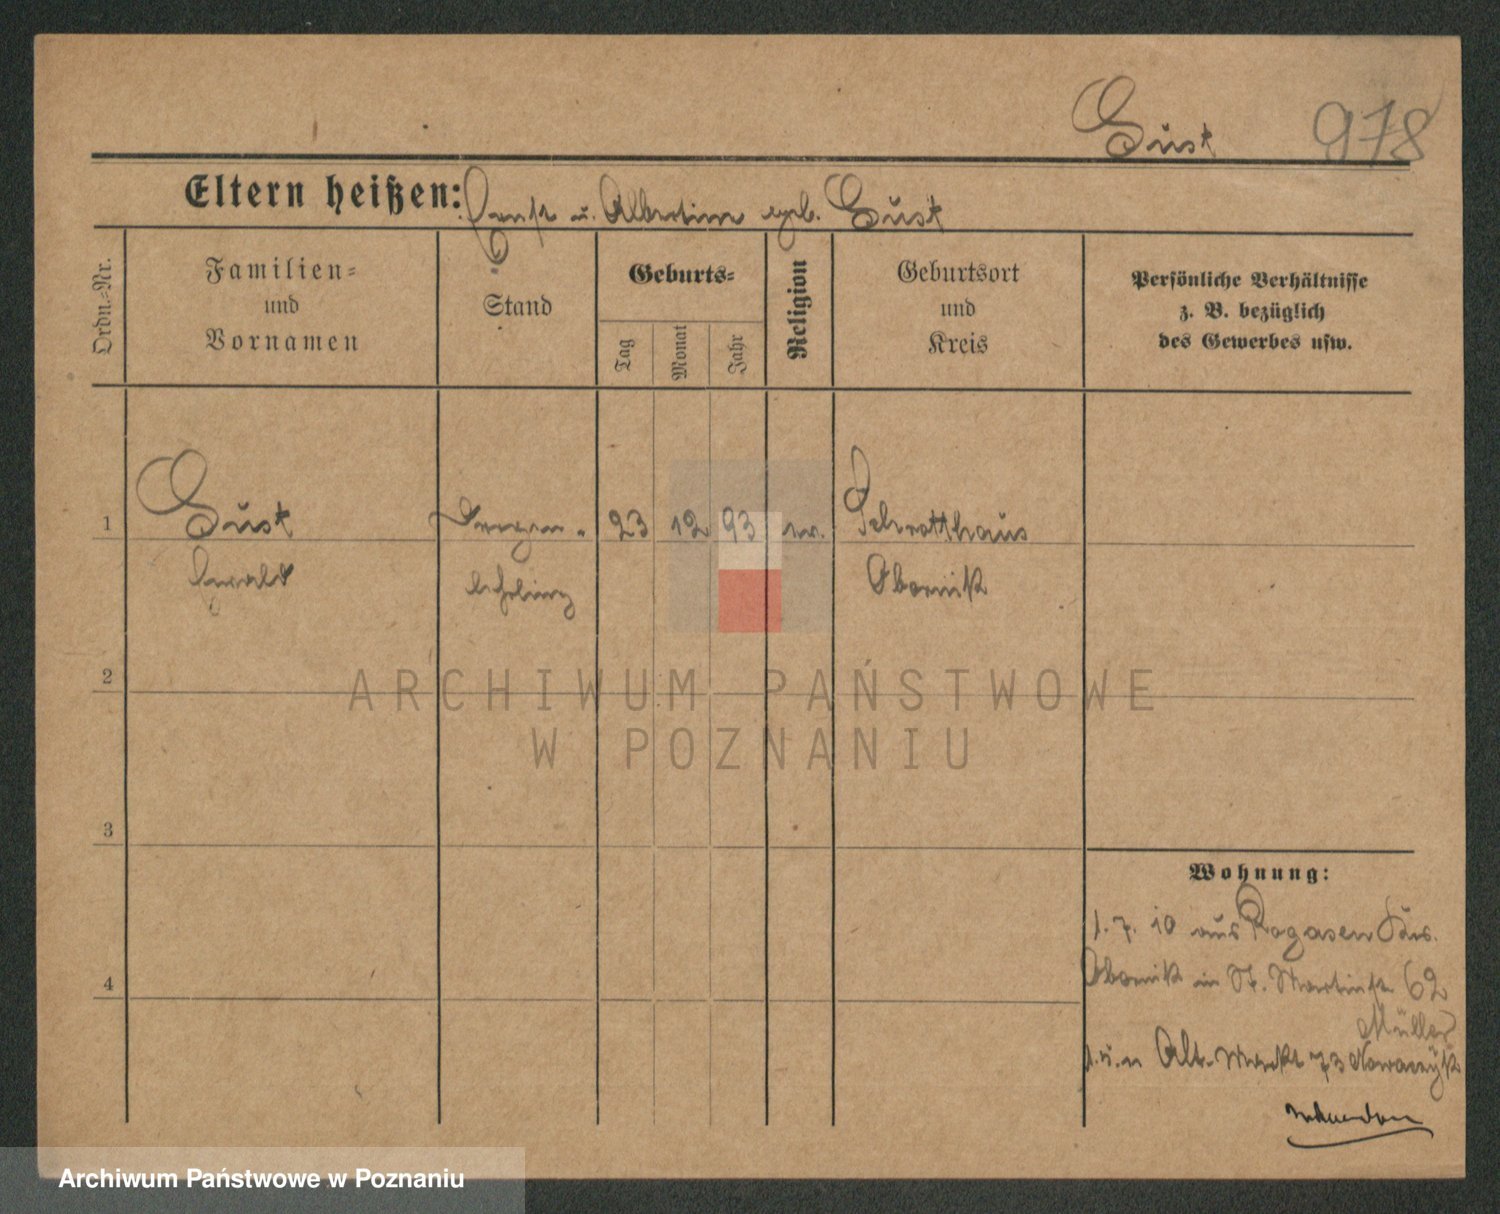 Gust 978
Eltern heißen: Ernst u. Albertine geb. Gust
Ordn.=Nr.
Familien=
und
Vornamen
Stand
Geburts=
Tag
Monat
Jahr
Religion
Geburtsort
und
Kreis
Persönliche Verhältnisse
z. B. bezüglich
des Gewerbes usw.
1 Gust Drogen- 23 12 93 ev. Schrotthaus
Ewald lehrling Obornik
2
3
4
Wohnung:
1. 7. 10 aus Rogasen Krs.
Obornik in St. Martinstr 62
Müller
Alt. Markt 73 Nowaczyk
ARCHIWUM PAŃSTWOWE
W POZNANIU
Archiwum Państwowe w Poznaniu